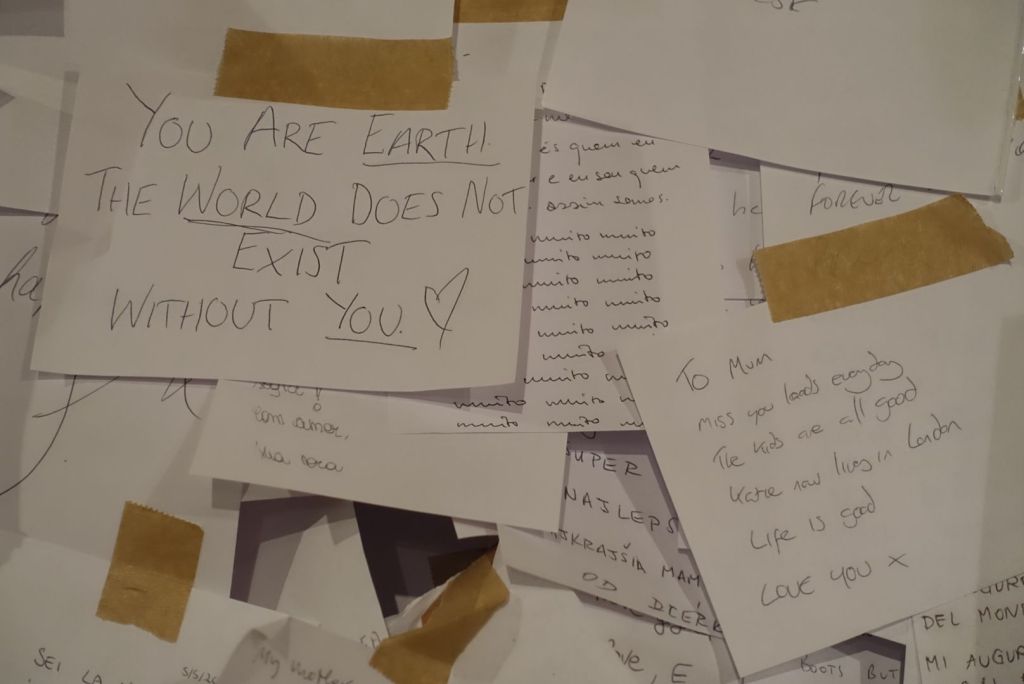 YOU ARE EARTH.
THE WORLD DOES NOT
EXIST
WITHOUT YOU.
és quem eu
e eu sou quem
assim somos.
muito muito
muito muito
muito muito
muito muito
muito muito
muito
muito
muito muito
muito muito
he
FOREVER
ha
com amor,
SUPER
NAJLEPŠ
MAM
OD DCÉR
TO MUM
MISS you loads everyday
The kids are all good
Katie now lives in London
Life is good
LOVE YOU X
SEI LA
5/5/20
My mother
DEL MOND
MI AUGUR
BUT